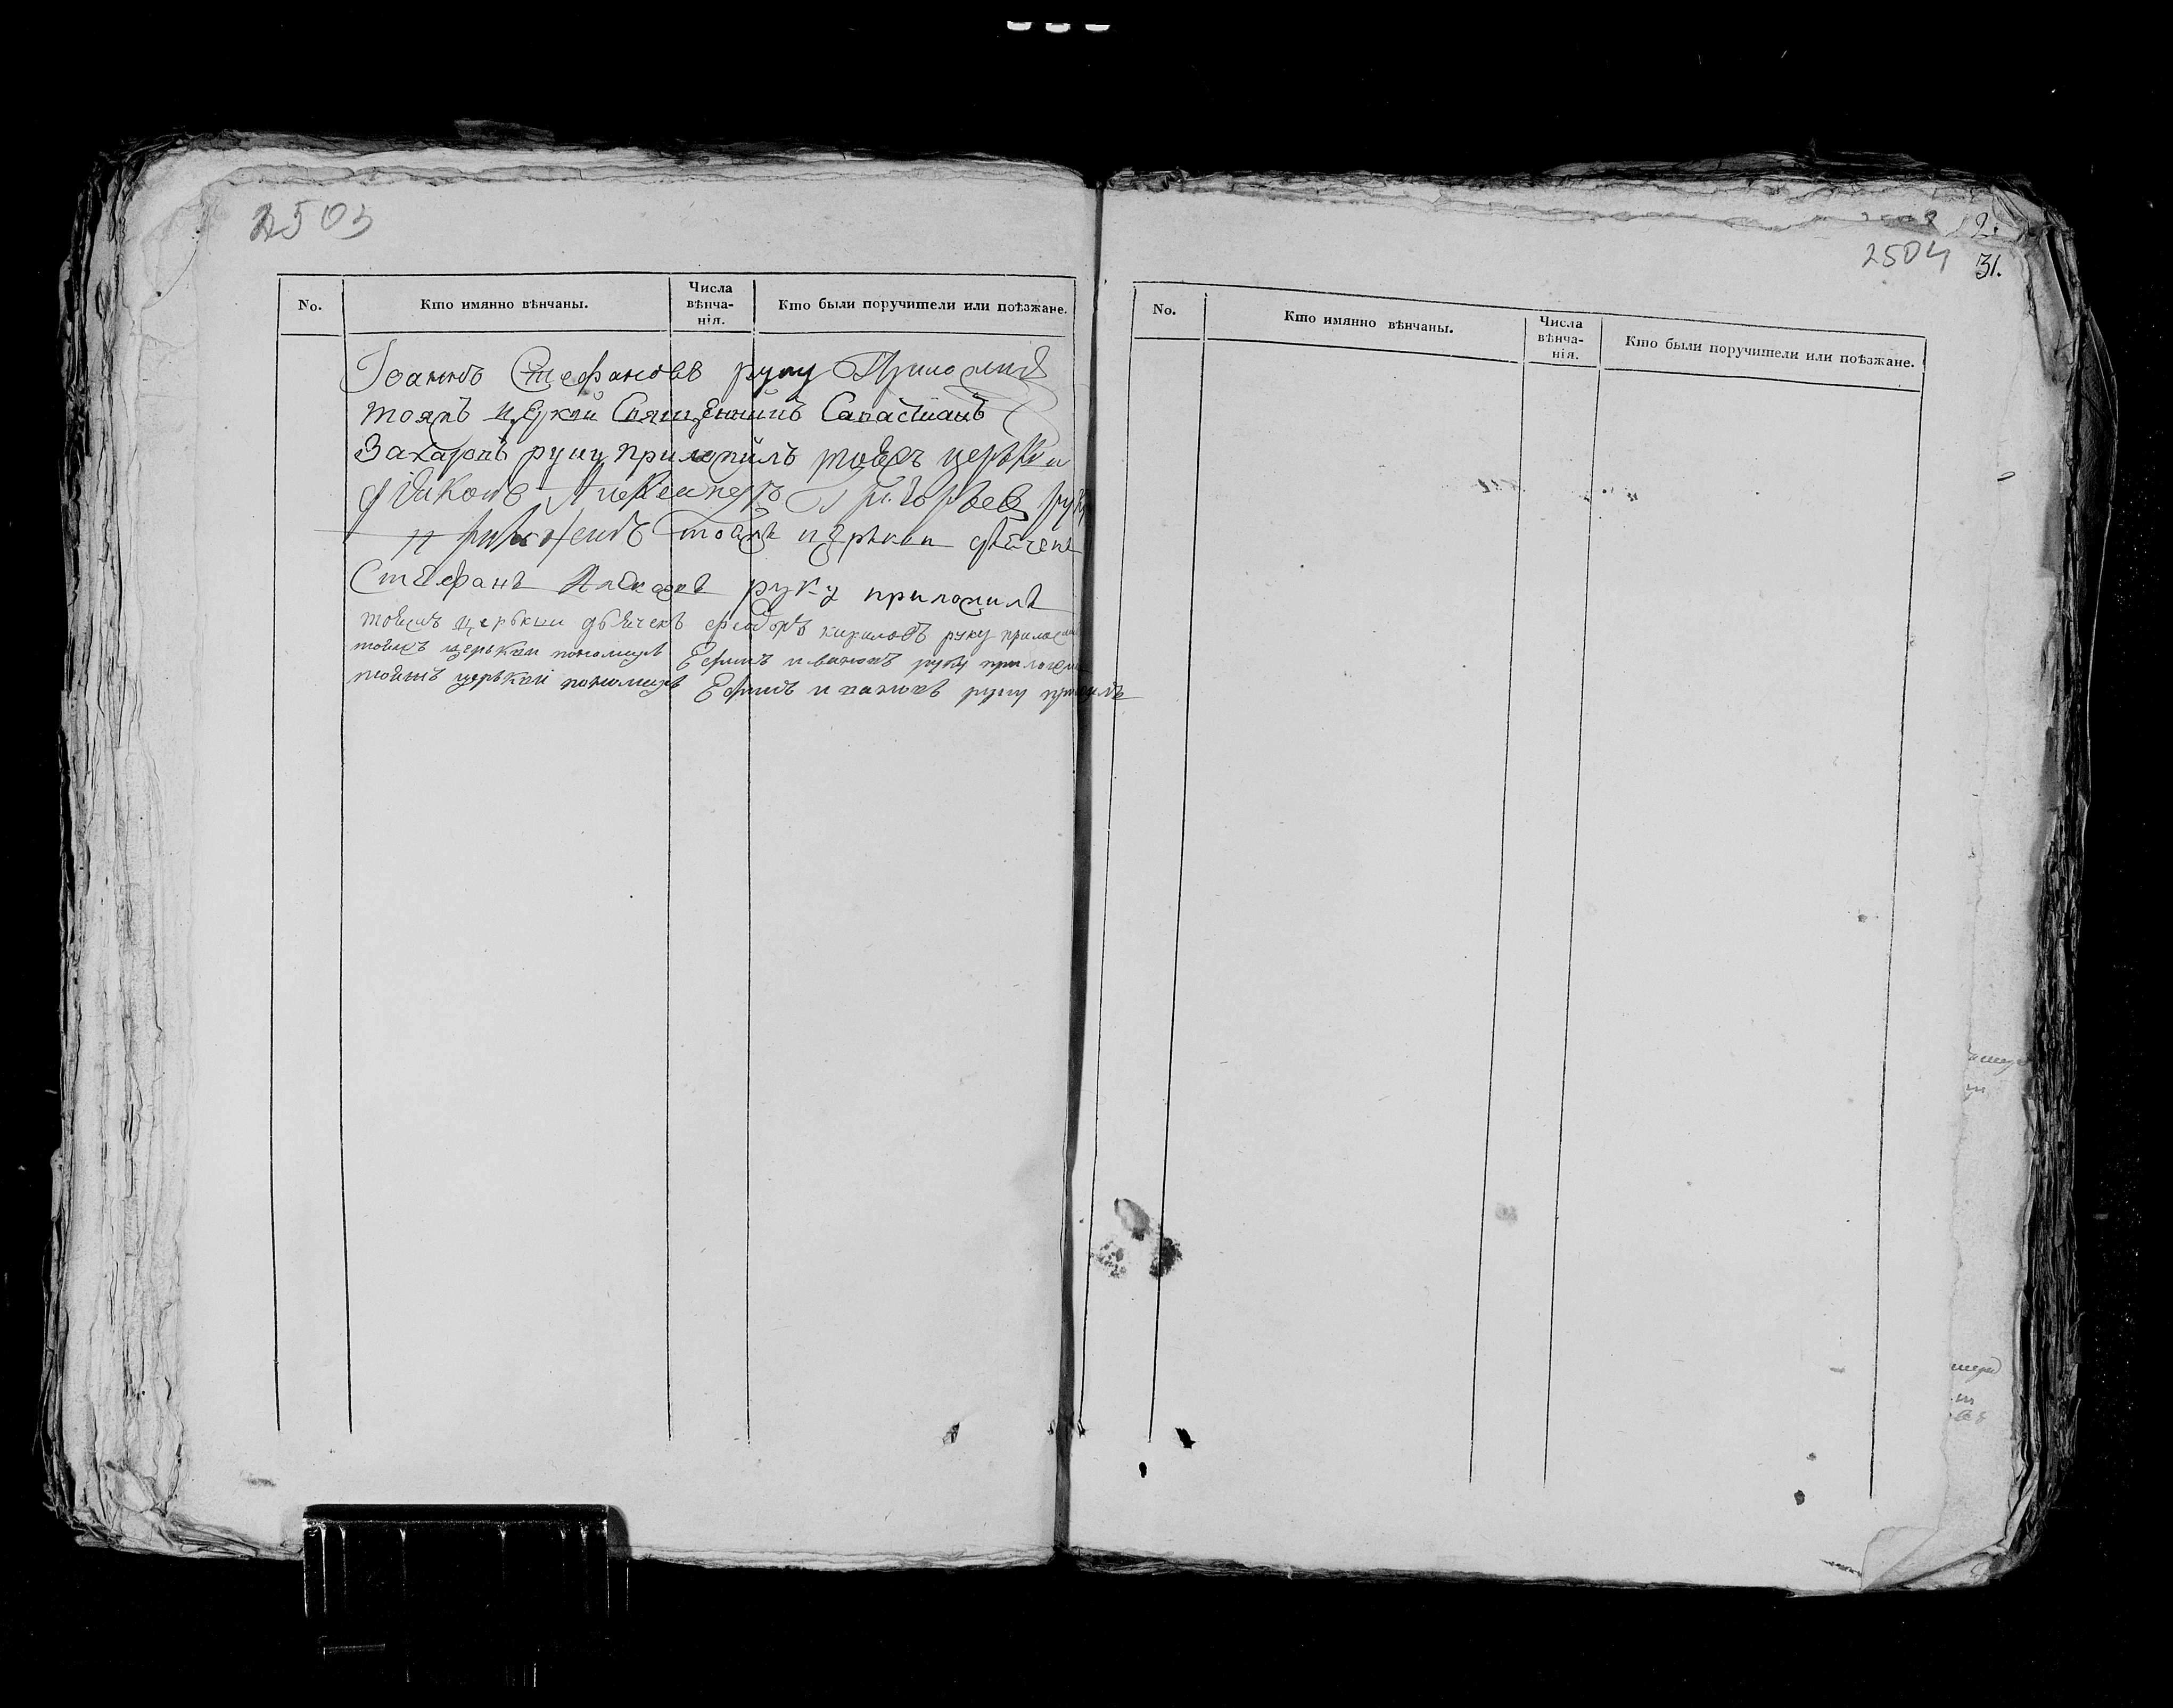 2503
No.
Кто имянно вѣнчаны.
Числа
вѣнча-
нія.
Кто были поручители или поѣзжане.
Іоаннъ Стефановъ руку Приложилъ
тояжъ церкви Священникъ Савастианъ
Захаровъ руку приложилъ тоежъ церькви
диконъ Александръ Григорьев руку
приложилъ тоейже церькви дьячекъ
Стефанъ руку приложилъ
тоижъ церькви дьячекъ феодоръ кириловъ руку приложилъ
тоижъ церькви пономаръ Ефимъ ивановъ руку приложилъ
тоижъ церькви пономаръ Ефимъ ивановъ руку
2504
2.
31.
No.
Кто имянно вѣнчаны.
Числа
вѣнча-
нія.
Кто были поручители или поѣзжане.